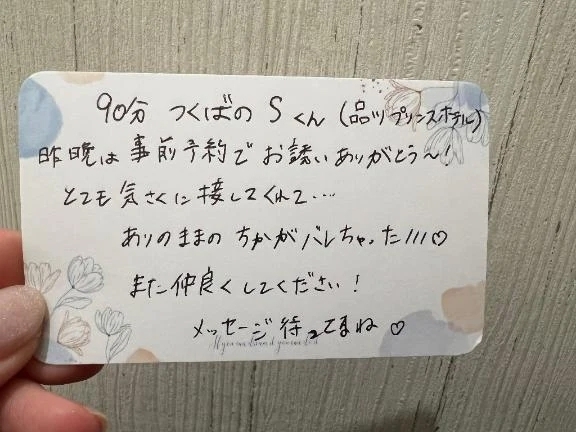 90分 つくばのSくん(品川プリンスホテル)
昨晩は事前予約でお誘いありがとう〜!
とても気さくに接してくれて...
ありのままのちかがバレちゃった///♡
また仲良くしてください!
メッセージ待ってまね♡